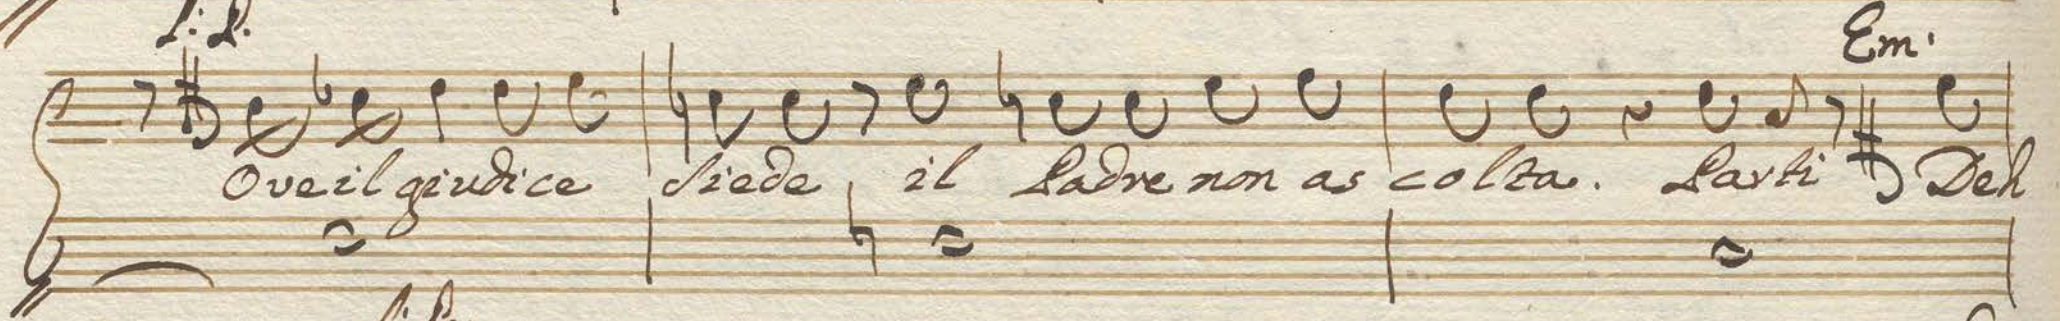 Em.
Ove il giudice siede, il Padre non ascolta. Parti Deh